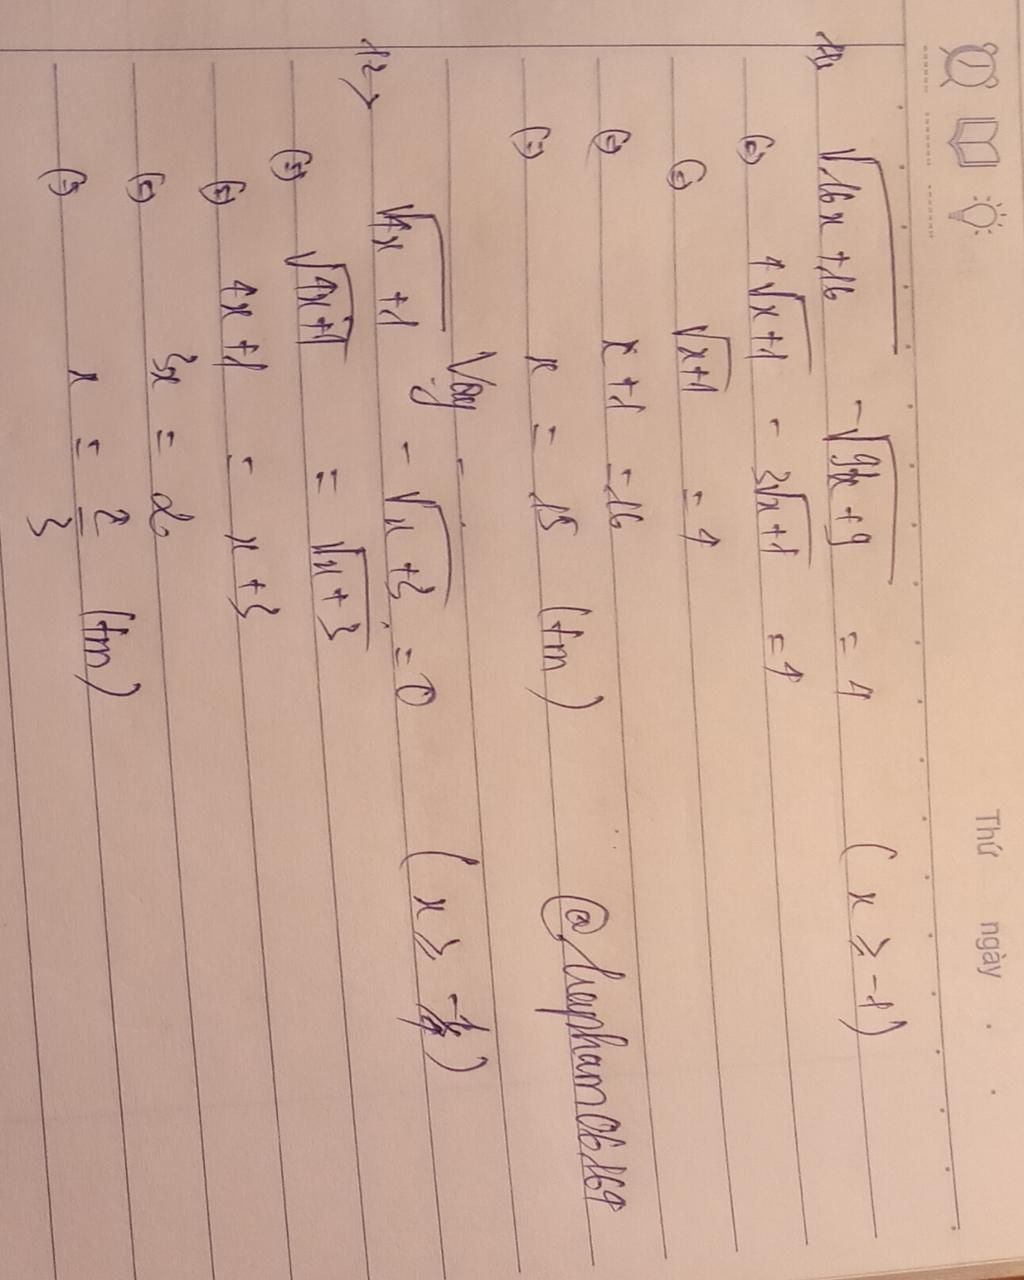 Thứ ngày
11, √16x + 16 - √9x + 9 = 4 (x ≥ -1)
⇔ 4√x + 1 - 3√x + 1 = 4
⇔ √x+1 = 4
⇔ x + 1 = 16
⇔ x = 15 (tm)
@hapham06169
Vậy -
12, √4x + 1 - √x + 3 = 0 (x ≥ -1/4)
⇔ √4x + 1 = √x + 3
⇔ 4x + 1 = x + 3
⇔ 3x = 2
⇔ x = 2/3 (tm)